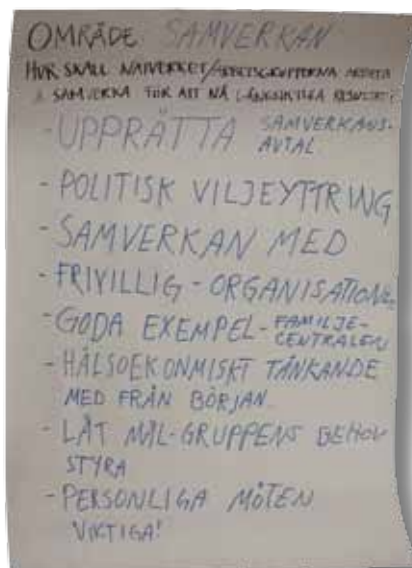 OMRÅDE SAMVERKAN
HUR SKALL NÄTVERKET/ARBETSGRUPPERNA ARBETA
& SAMVERKA FÖR ATT NÅ LÅNGSIKTIGA RESULTAT?
- UPPRÄTTA SAMVERKANS-
AVTAL
- POLITISK VILJEYTTRING
- SAMVERKAN MED
- FRIVILLIG - ORGANISATIONER
- GODA EXEMPEL - FAMILJE-
CENTRALEN
- HÄLSOEKONMISKT TÄNKANDE
MED FRÅN BÖRJAN
- LÅT MÅL-GRUPPENS BEHOV
STYRA
- PERSONLIGA MÖTEN
VIKTIGA!